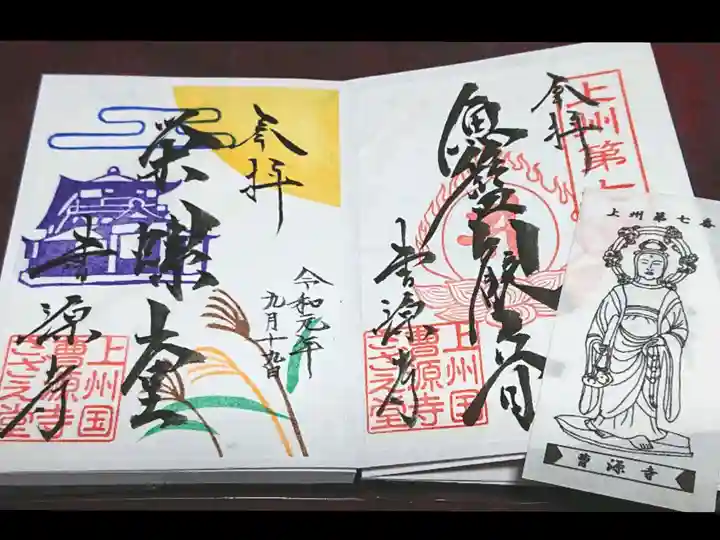 奉拝
栄螺堂
曹源寺
令和元年
九月十九日
上州国
曹源寺
さざえ堂
奉拝
上州第七
魚籃観世音
曹源寺
上州国
曹源寺
さざえ堂
上州第七番
曹源寺